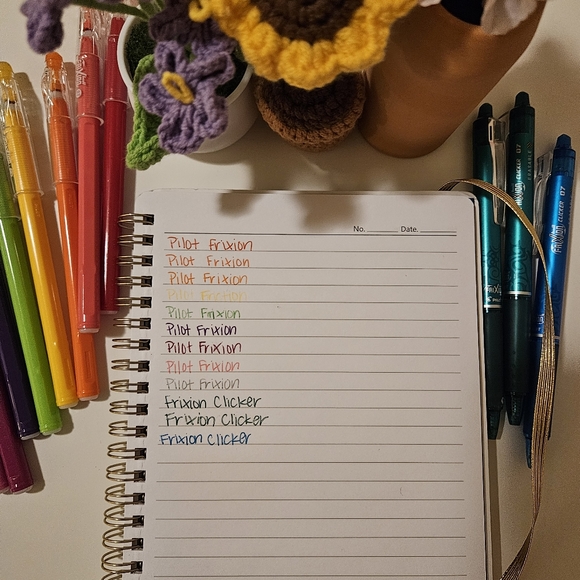 No. Date.
Pilot Frixion
Pilot Frixion
Pilot Frixion
Pilot Friction
Pilot Frixion
Pilot Frixion
Pilot Frixion
Pilot Frixion
Pilot Frixion
Frixion Clicker
Frixion Clicker
Frixion Clicker
FRIXION CLICKER 07
FRIXION CLICKER 07